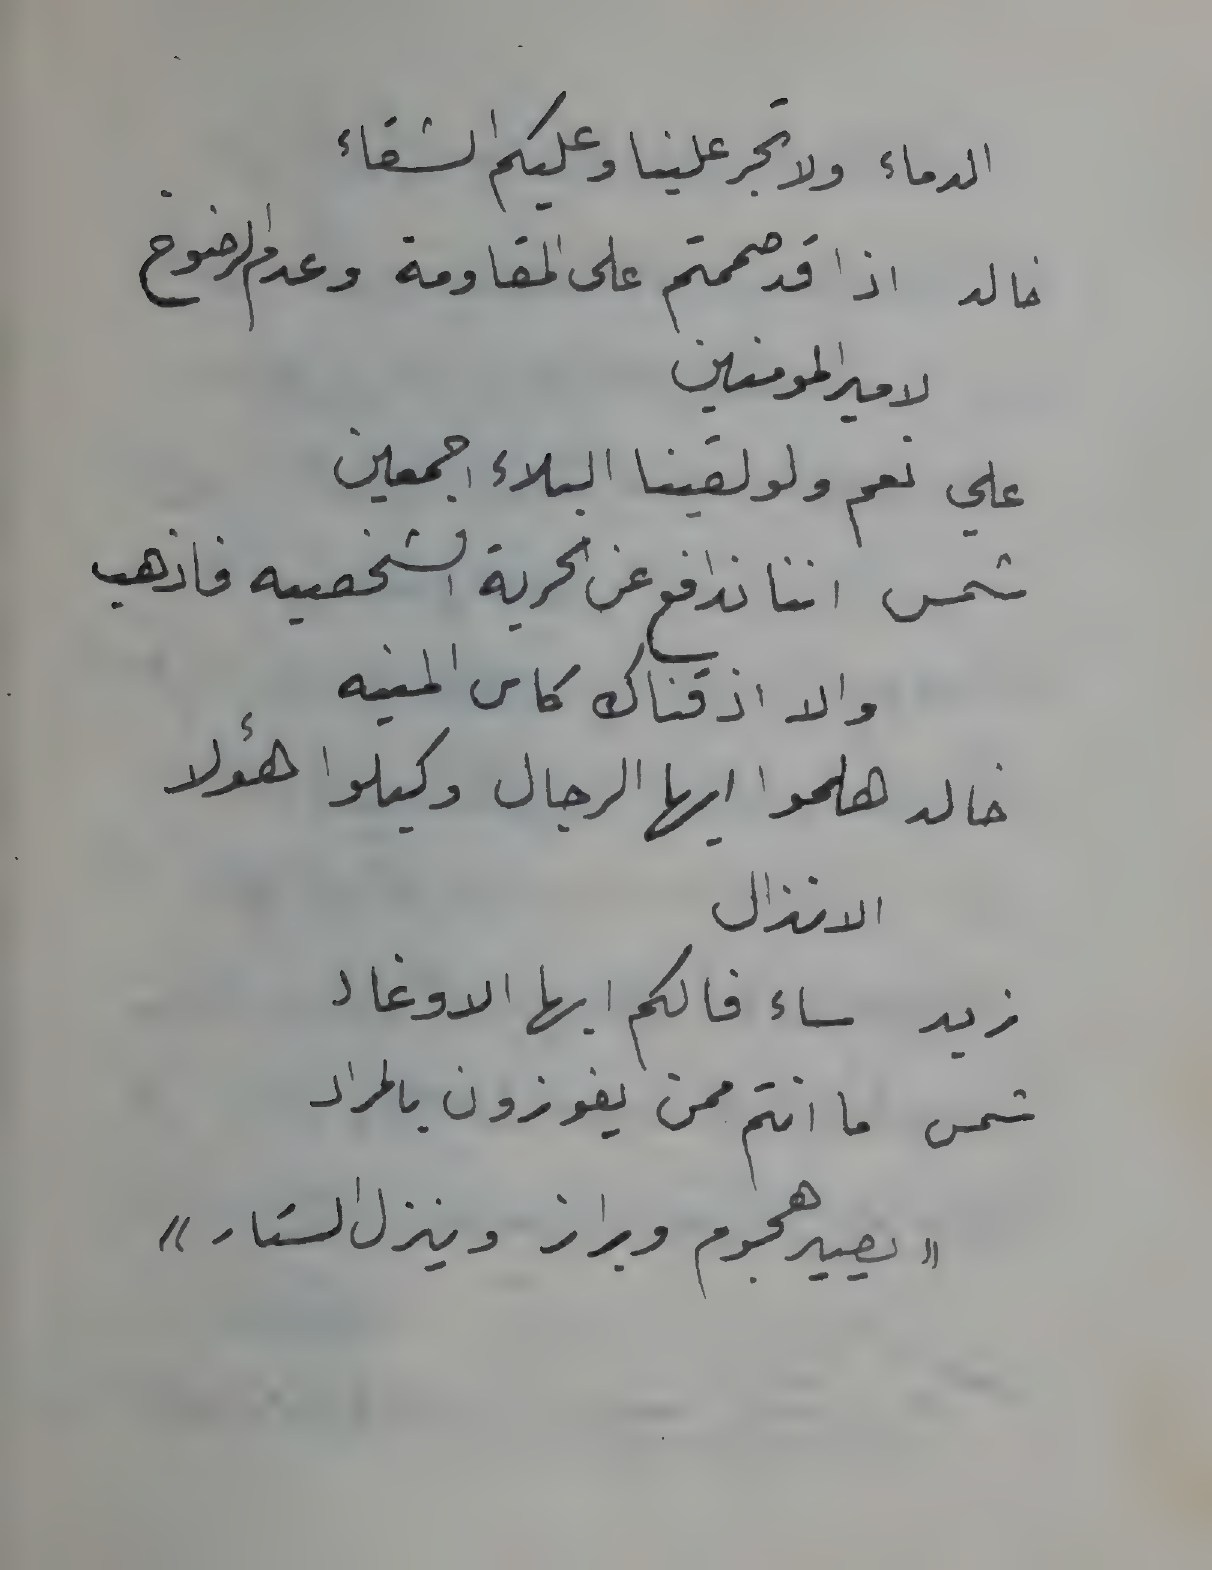 الدماء ولا تجر علينا وعليكم الشقاء
خالد اذا قد صممتم على المقاومة وعدم الرضوخ
لامير المومنين
علي نعم ولو لقينا البلاء اجمعين
شمس اننا ندافع عن الحرية الشخصيه فاذهب
والا اذقناك كاس المنيه
خالد هلموا ايها الرجال وكبلوا هؤلا
الانذال
زيد ساء فالكم ايها الاوغاد
شمس ما انتم ممن يفوزون بالمراد
« يصير هجوم وبراز وينزل الستار »